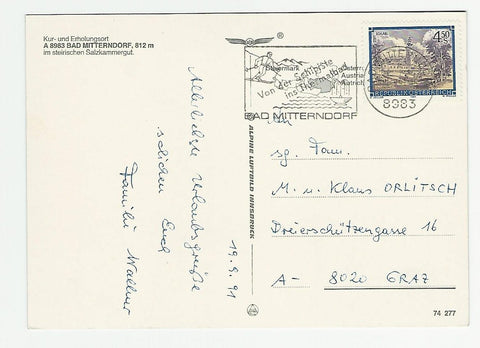 Kur- und Erholungsort
A 8983 BAD MITTERNDORF, 812 m
im steirischen Salzkammergut.
®
Steiermark
Von der Schipiste
ins Thermalbad
BAD MITTERNDORF
4.50
REPUBLIK ÖSTERREICH
8983
Allerliebste Urlaubsgrüße
schicken Euch
Familie Wallner
19.9.91
ALPINE LUFTBILD INNSBRUCK
An
sg. Fam.
M. u. Klaus ORLITSCH
Dreierschützengasse 16
A- 8020 GRAZ
74 277